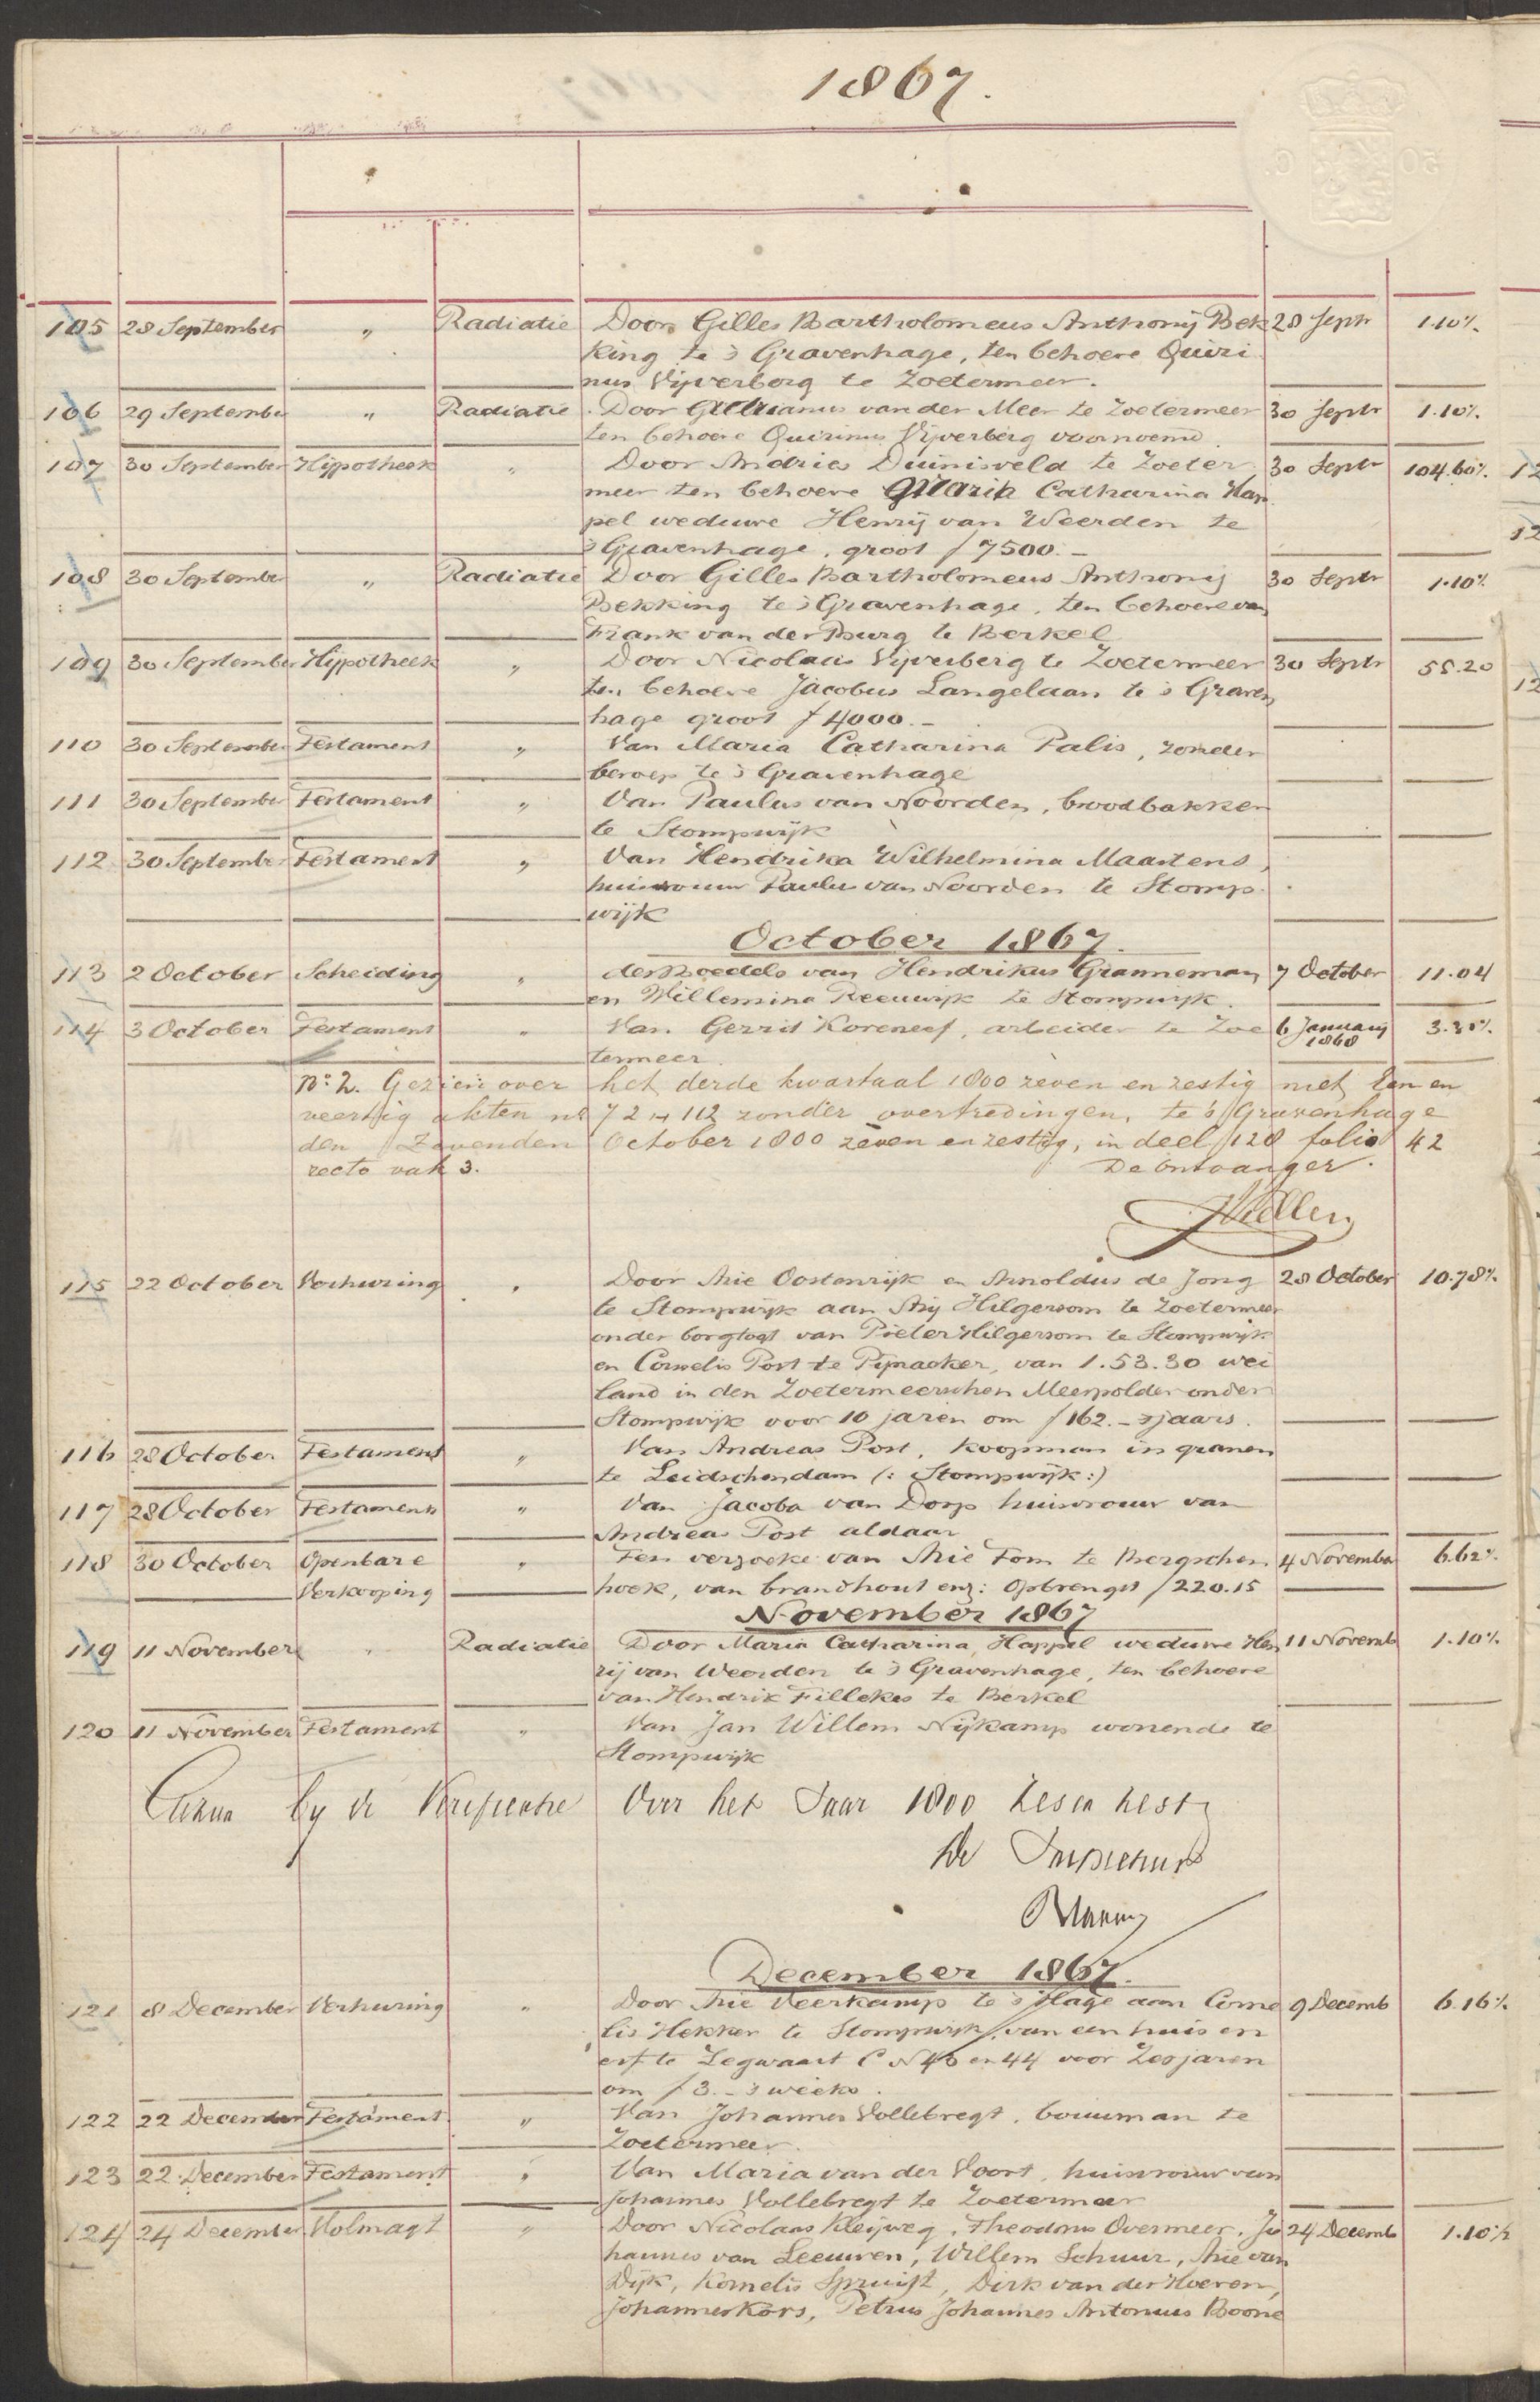 1867.
105 28 September " Radiatie Door Gilles Bartholomeus Anthonij Bek 28 Septr 1.10½
king te 's Gravenhage, ten behoeve Quiri
nus Vijverberg te Zoetermeer.
106 29 September " Radiatie Door Adrianus van der Meer te Zoetermeer 30 Septr 1.10½
ten behoeve Quirinus Vijverberg voornoemd.
107 30 September Hijpotheek " Door Andries Duinisveld te Zoeter 30 Septr 104.60½
meer ten behoeve Maria Catharina Hap
pel weduwe Henrij van Weerden te
's Gravenhage, groot ƒ 7500.-
108 30 September " Radiatie Door Gilles Bartholomeus Anthonij 30 Septr 1.10½
Bekking te 's Gravenhage, ten behoeve van
Frank van der Burg te Berkel
109 30 September Hijpotheek " Door Nicolaas Vijverberg te Zoetermeer 30 Septr 55.20
ten behoeve Jacobus Langelaan te 's Graven
hage groot ƒ 4000.-
110 30 September Testament " Van Maria Catharina Palis, zonder
beroep te 's Gravenhage
111 30 September Testament " Van Paulus van Noorden, broodbakker
te Stompwijk
112 30 September Testament " Van Hendrika Wilhelmina Maartens,
huisvrouw Paulus van Noorden te Stomp
wijk
October 1867.
113 2 October Scheiding " des boedels van Hendrikus Granneman 7 October 11.04
en Willemina Reeuwijk te Stompwijk.
114 3 October Testament " Van Gerrit Koreneef, arbeider te Zoe 6 Januarij 1868 3.31½
termeer.
No. 2. Gezien over het derde kwartaal 1800 zeven en zestig met een en
veertig akten no 72 - 112 zonder overtredingen, te 's Gravenhage
den Zevenden October 1800 zeven en zestig, in deel 128 folio 42
recto vak 3. De Ontvanger.
115 22 October Verhuring " Door Arie Oostenrijk en Arnoldus de Jong 28 October 10.78½
te Stompwijk aan Arij Hilgersom te Zoetermeer
onder borgtogt van Pieter Hilgersom te Stompwijk
en Cornelis Post te Pijnacker, van 1.53.30 wei
land in den Zoetermeerschen Meerpolder onder
Stompwijk voor 10 jaren om ƒ 162.- 's jaars.
116 28 October Testament " Van Andreas Post, koopman in granen
te Leidschendam (: Stompwijk :)
117 28 October Testament " Van Jacoba van Dorp huisvrouw van
Andreas Post aldaar
118 30 October Openbare " Ten verzoeke van Arie Tom te Bergschen 4 November 6.62½
Verkooping hoek, van brandhout enz: Opbrengst ƒ 220.15
November 1867
119 11 November " Radiatie Door Maria Catharina Happel weduwe Hen 11 Novemb 1.10½
rij van Weerden te 's Gravenhage, ten behoeve
van Hendrik Fillekes te Berkel
120 11 November Testament " Van Jan Willem Nijkamp wonende te
Stompwijk
by de Verificatie over het Jaar 1800 zes en zestig
De Inspecteur
December 1867.
121 8 December Verhuring " Door Arie Veerkamp te 's Hage aan Corne 9 Decemb 6.16½
lis Hekker te Stompwijk, van een huis en
erf te Zegwaart C N 43 en 44 voor Zes jaren
om ƒ 3.- 's weeks.
122 22 December Testament " Van Johannes Vollebregt, bouwman te
Zoetermeer.
123 22 December Testament " Van Maria van der Voort, huisvrouw van
Johannes Vollebregt te Zoetermeer
124 24 December Volmagt " Door Nicolaas Kleijweg, Theodorus Overmeer, Jo 24 Decemb 1.10½
hannes van Leeuwen, Willem Schuur, Arie van
Dijk, Kornelis Spruijt, Dirk van der Hoeven,
Johannes Kors, Petrus Johannes Antonius Boone